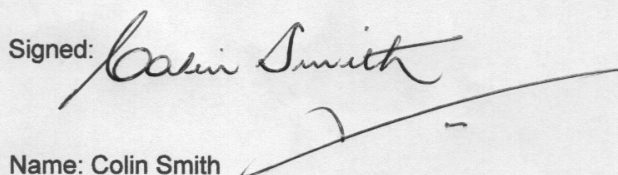 Signed: Colin Smith
Name: Colin Smith